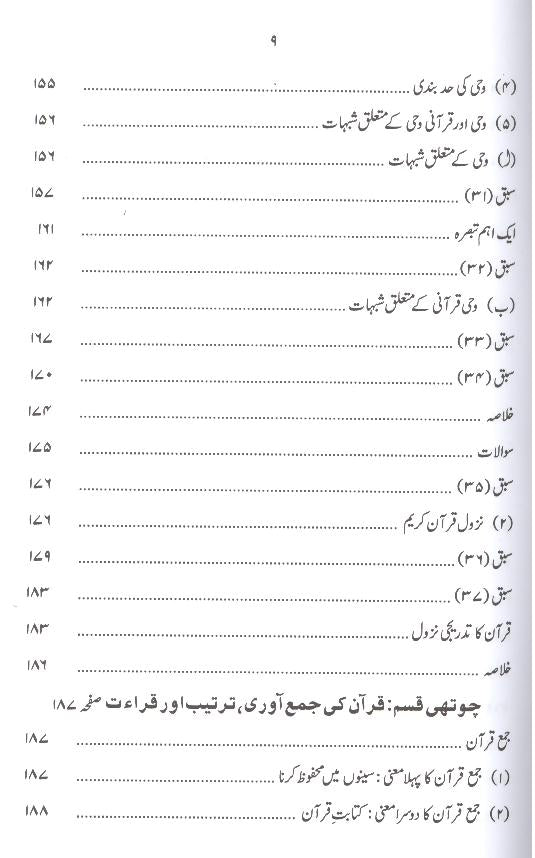 ۹
(۴) وحی کی حد بندی ........ ۱۵۵
(۵) وحی اور قرآنی وحی کے متعلق شبہات ........ ۱۵۶
(ل) وحی کے متعلق شبہات ........ ۱۵۶
سبق (۳۱) ........ ۱۵۷
ایک اہم تبصرہ ........ ۱۶۱
سبق (۳۲) ........ ۱۶۲
(ب) وحی قرآنی کے متعلق شبہات ........ ۱۶۲
سبق (۳۳) ........ ۱۶۷
سبق (۳۴) ........ ۱۷۰
خلاصہ ........ ۱۷۴
سوالات ........ ۱۷۵
سبق (۳۵) ........ ۱۷۶
(۲) نزول قرآن کریم ........ ۱۷۶
سبق (۳۶) ........ ۱۷۹
سبق (۳۷) ........ ۱۸۳
قرآن کا تدریجی نزول ........ ۱۸۳
خلاصہ ........ ۱۸۶
چوتھی قسم: قرآن کی جمع آوری، ترتیب اور قراءت صفحہ ۱۸۷
جمع قرآن ........ ۱۸۷
(۱) جمع قرآن کا پہلا معنی: سینوں میں محفوظ کرنا ........ ۱۸۷
(۲) جمع قرآن کا دوسرا معنی: کتابتِ قرآن ........ ۱۸۸